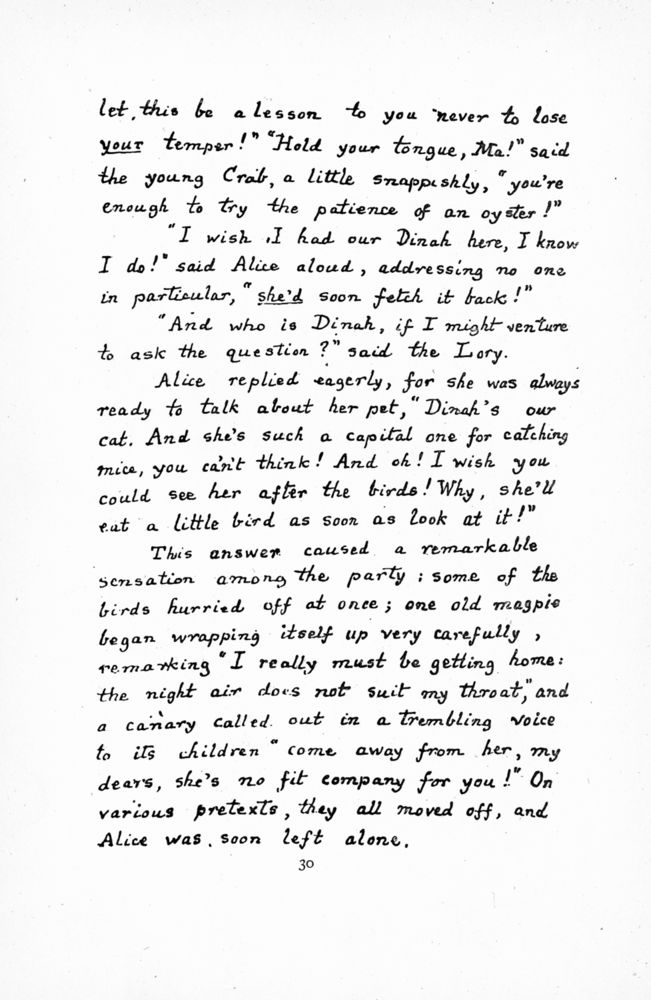 let this be a lesson to you never to lose
your temper!" "Hold your tongue, Ma!" said
the young Crab, a little snappishly, "you're
enough to try the patience of an oyster!"
"I wish I had our Dinah here, I know
I do!" said Alice aloud, addressing no one
in particular, "she'd soon fetch it back!"
"And who is Dinah, if I might venture
to ask the question?" said the Lory.
Alice replied eagerly, for she was always
ready to talk about her pet, "Dinah's our
cat. And she's such a capital one for catching
mice, you can't think! And oh! I wish you
could see her after the birds! Why, she'll
eat a little bird as soon as look at it!"
This answer caused a remarkable
sensation among the party: some of the
birds hurried off at once; one old magpie
began wrapping itself up very carefully,
remarking "I really must be getting home:
the night air does not suit my throat," and
a canary called out in a trembling voice
to its children "come away from her, my
dears, she's no fit company for you!" On
various pretexts, they all moved off, and
Alice was soon left alone.
30